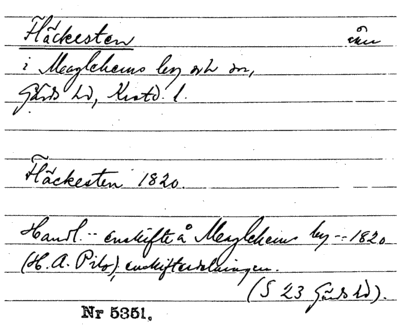 Fläckesten än
i Maglehems by och sn,
Gärds hd, Krstd. l.
Fläckesten 1820.
Handl. -- enskifte å Maglehems by -- 1820
(H. A. Pihs), enskiftesdelningen.
(S 23 Gärds hd).
Nr 5351.